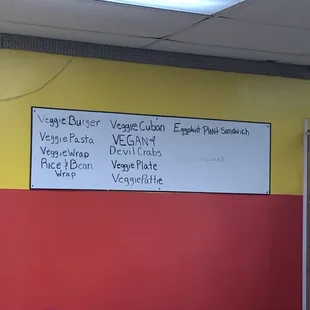 Veggie Burger
Veggie Pasta
Veggie Wrap
Rice & Bean
Wrap
Veggie Cubán
VEGAN
Devil Crabs
Veggie Plate
Veggie Pattie
Eggplant Plant Sandwich